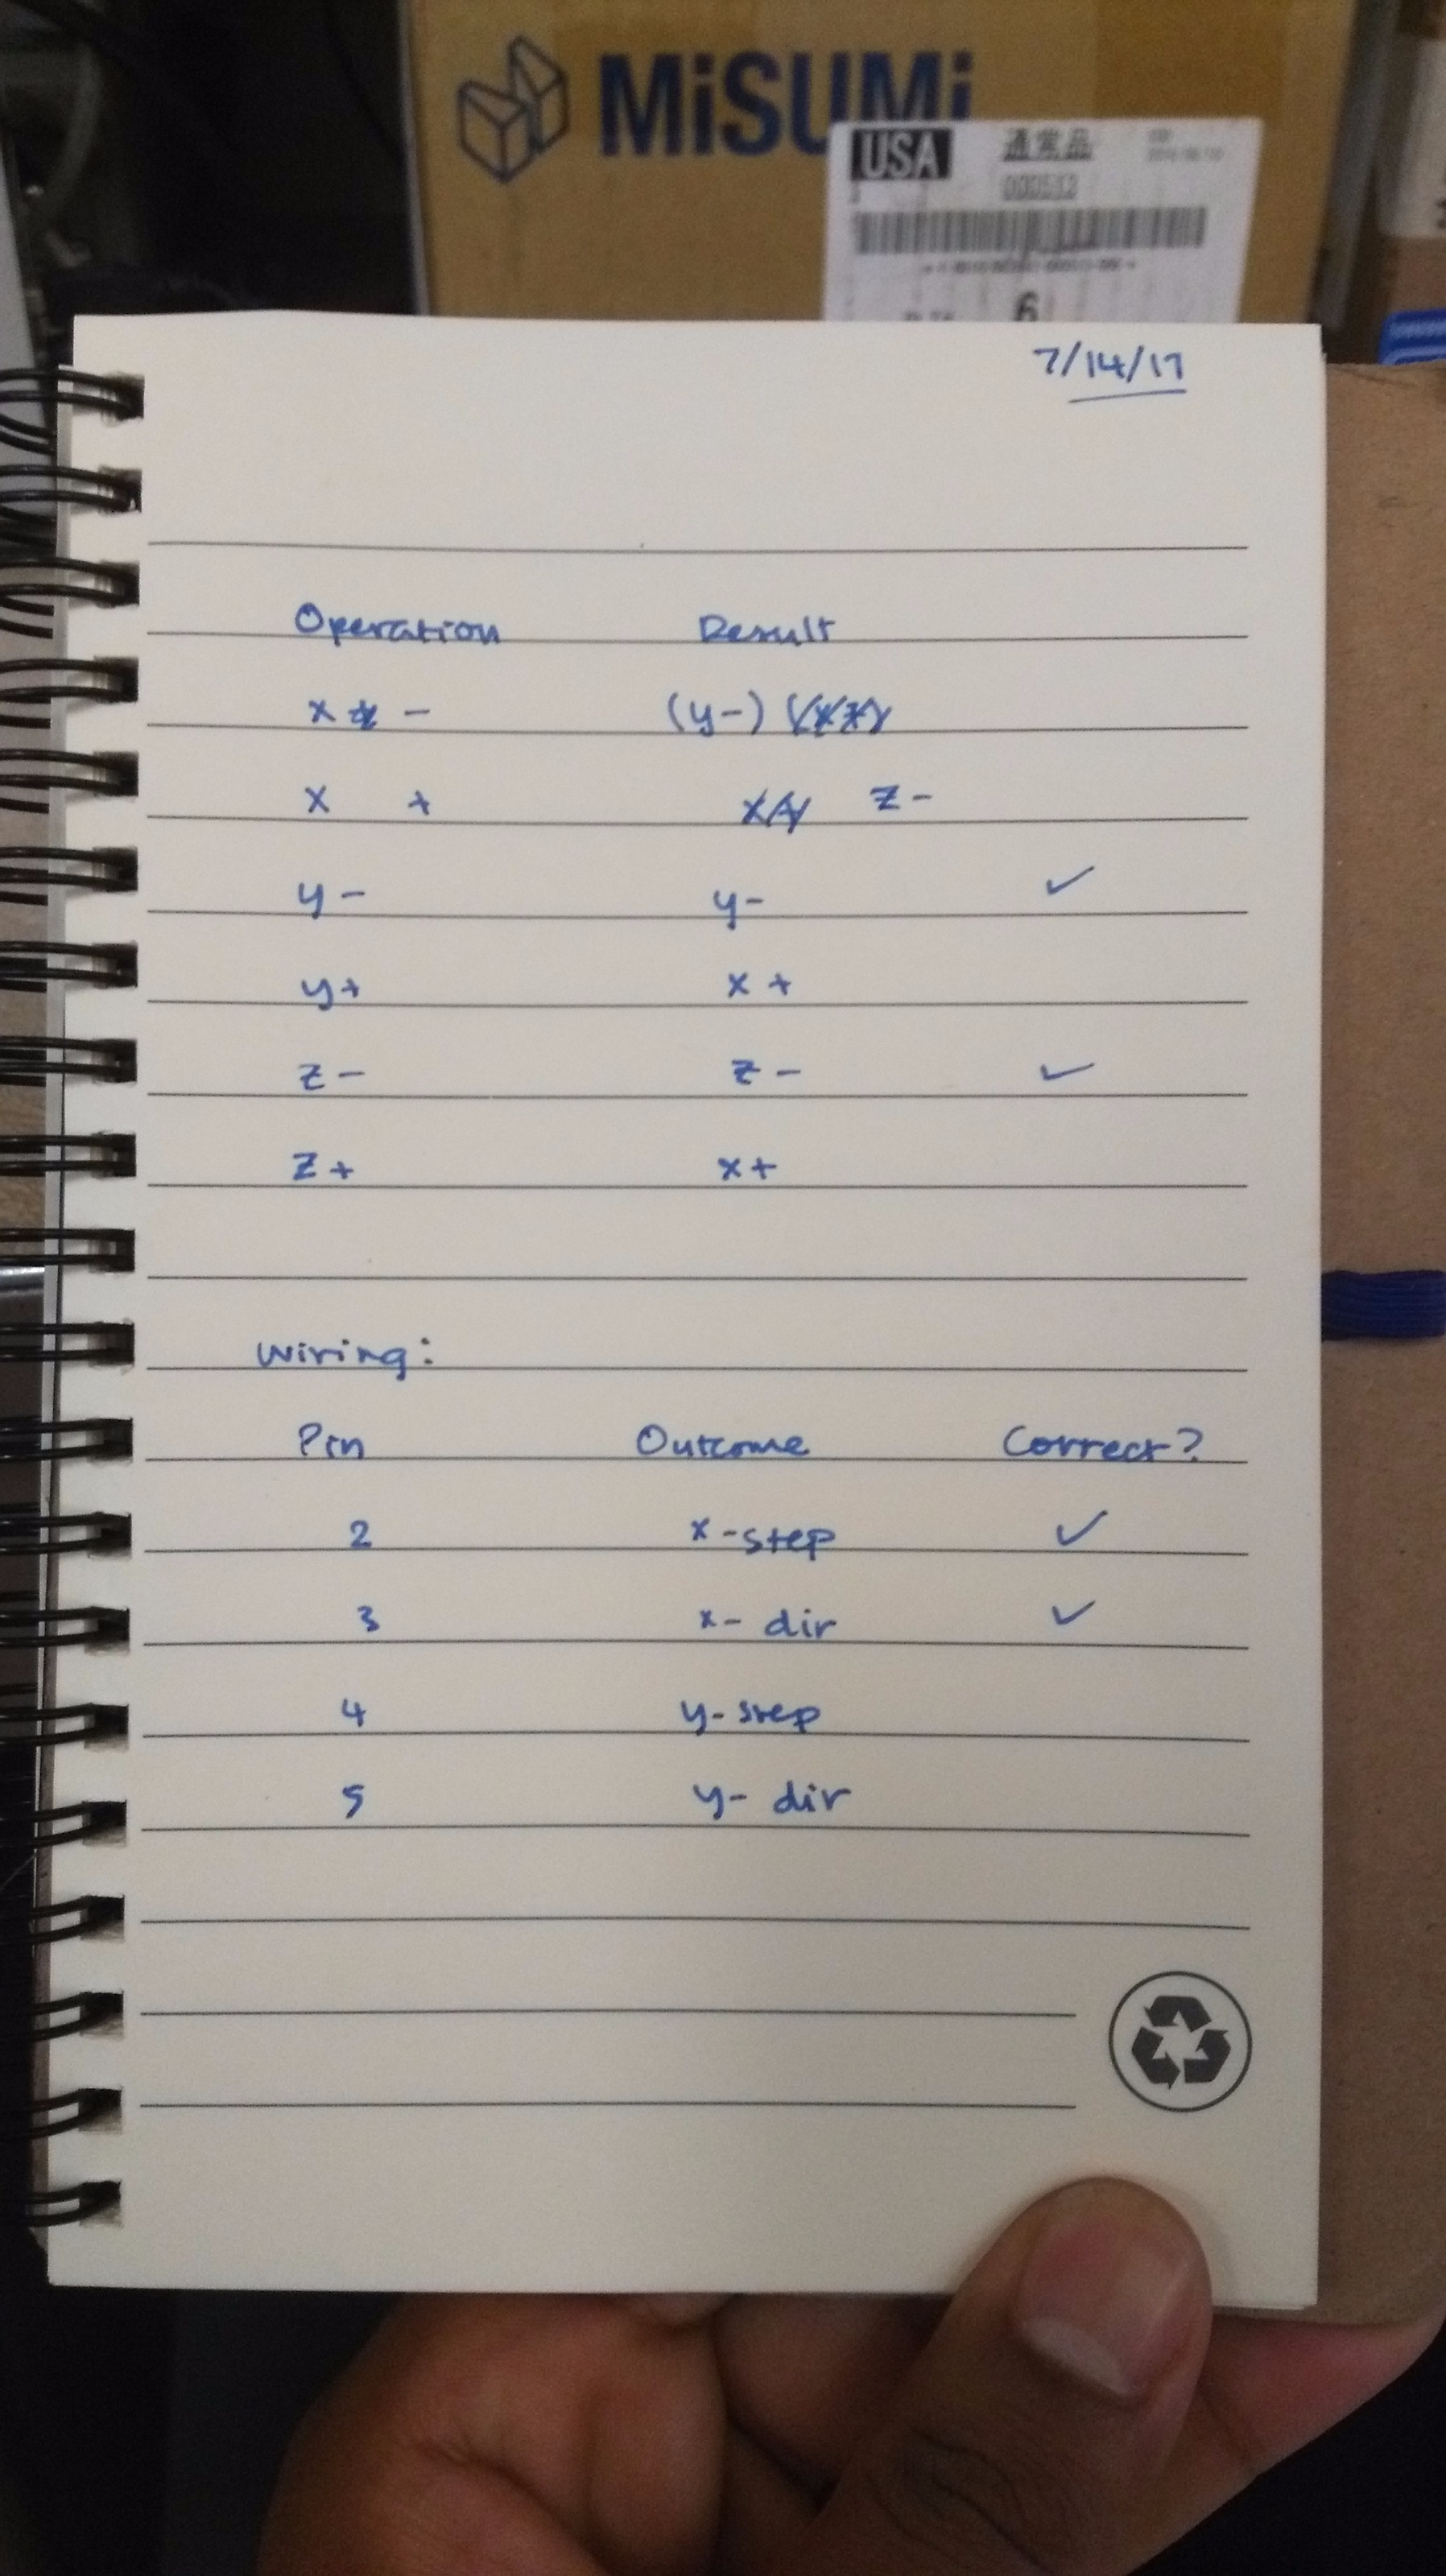 MiSUMi
USA 通常品
6
7/14/17
Operation Result
x - (y-)
x + z-
y- y- ✓
y+ x+
z- z- ✓
z+ x+
Wiring:
Pin Outcome Correct?
2 x-step ✓
3 x-dir ✓
4 y-step
5 y-dir